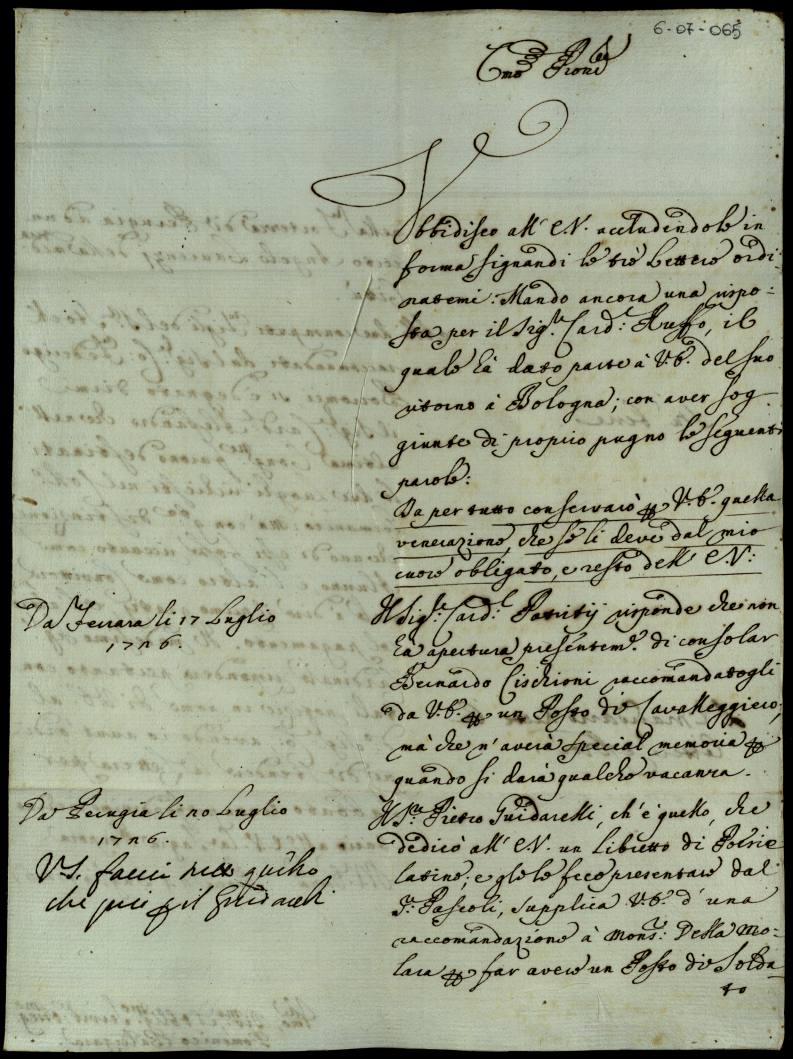 6-07-065
Emo Prone
Vbbidisco all' E.V. accludendole in
forma signandi le tre Lettere ordi
natemi: Mando ancora una rispo-
sta per il Sig.r Card.l Ruffo, il
quale hà dato parte à V.E. del suo
ritorno à Bologna; con aver sog-
giunte di proprio pugno le seguenti
parole:
Da per tutto conservarò p V.E. quella
venerazione, che se li deve dal mio
cuore obligato, e resto dell' E.V:
Da Ferrara li 17 Luglio
1726.
Il Sig.r Card.l Patritij risponde che non
hà apertura presentem.e di consolar
Bernardo Cischioni raccomandatogli
da V.E. p un Posto di Cavalleggiero,
mà che n' averà special memoria p
quando si darà qualche vacanza.
Da Perugia li 20 Luglio
1726.
V.S. facci quello
che può p il Guidarelli
Il S.r Pietro Guidarelli, ch' è quello, che
dedicò all' E.V. un libretto di Poesie
latine, e gle le fece presentare dal
S.r Pascoli, supplica V.E. d' una
raccomandazione à Mons.r Della Mo-
lara p far avere un Posto di Solda-
to